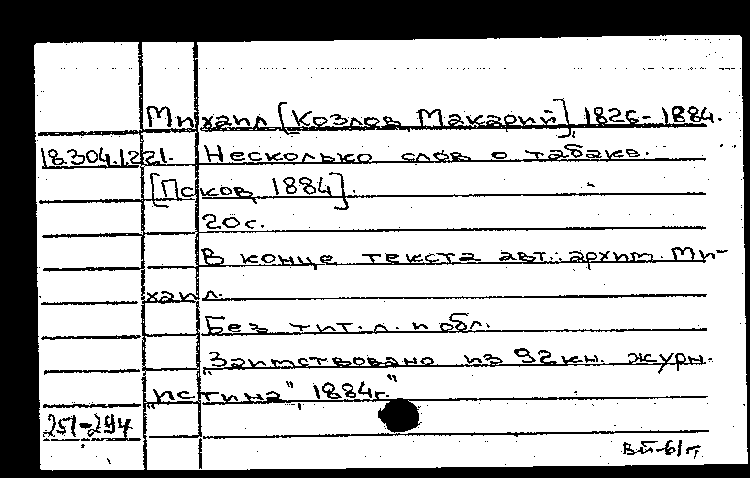 Михаил [Козлов, Макарий] 1826-1884.
18.304.1221. Несколько слов о табаке.
[Псков, 1884].
20с.
В конце текста авт.: архим. Ми-
хаил.
Без тит. л. и обл.
"Заимствовано из 92 кн. журн.
"Истина", 1884г."
251-294